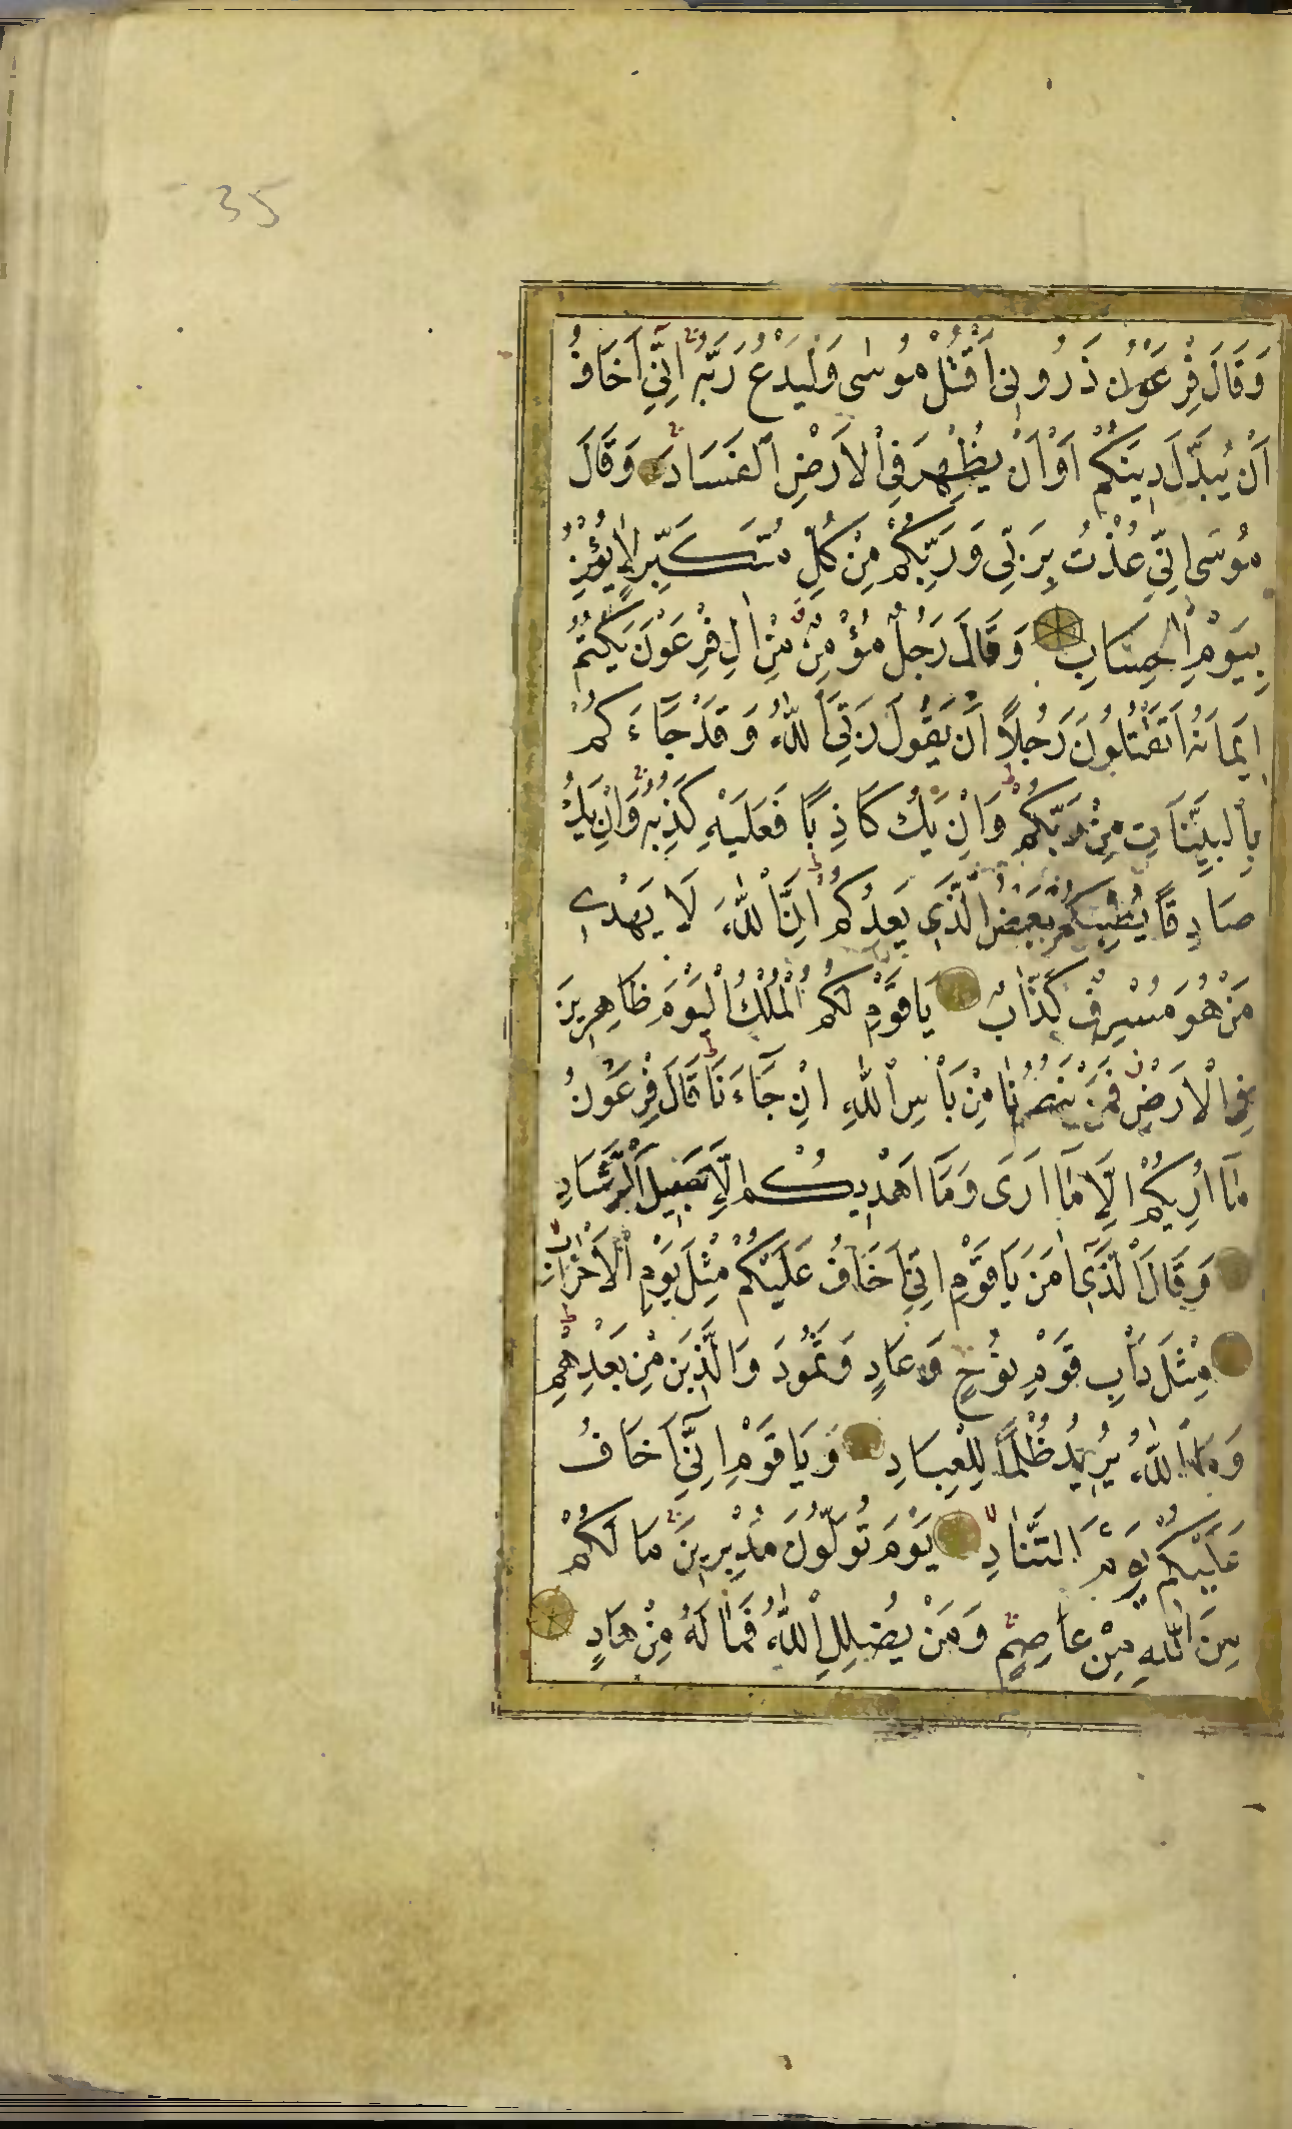 35
وَقَالَ فِرْعَوْنُ ذَرُونِي أَقْتُلْ مُوسٰى وَلْيَدْعُ رَبَّهُ اِنِّي اَخَافُ
اَنْ يُبَدِّلَ دِينَكُمْ اَوْ اَنْ يُظْهِرَ فِي الْاَرْضِ الْفَسَادَ وَقَالَ
مُوسَى اِنِّي عُذْتُ بِرَبِّي وَرَبِّكُمْ مِنْ كُلِّ مُتَكَبِّرٍ لَا يُؤْمِنُ
بِيَوْمِ الْحِسَابِ وَقَالَ رَجُلٌ مُؤْمِنٌ مِنْ اٰلِ فِرْعَوْنَ يَكْتُمُ
اِيمَانَهُ اَتَقْتُلُونَ رَجُلًا اَنْ يَقُولَ رَبِّيَ اللّٰهُ وَقَدْ جَاءَكُمْ
بِالْبَيِّنَاتِ مِنْ رَبِّكُمْ وَاِنْ يَكُ كَاذِبًا فَعَلَيْهِ كَذِبُهُ وَاِنْ يَكُ
صَادِقًا يُصِبْكُمْ بَعْضُ الَّذِي يَعِدُكُمْ اِنَّ اللّٰهَ لَا يَهْدِي
مَنْ هُوَ مُسْرِفٌ كَذَّابٌ يَا قَوْمِ لَكُمُ الْمُلْكُ الْيَوْمَ ظَاهِرِينَ
فِي الْاَرْضِ فَمَنْ يَنْصُرُنَا مِنْ بَأْسِ اللّٰهِ اِنْ جَاءَنَا قَالَ فِرْعَوْنُ
مَا اُرِيكُمْ اِلَّا مَا اَرَى وَمَا اَهْدِيكُمْ اِلَّا سَبِيلَ الرَّشَادِ
وَقَالَ الَّذِي اٰمَنَ يَا قَوْمِ اِنِّي اَخَافُ عَلَيْكُمْ مِثْلَ يَوْمِ الْاَحْزَابِ
مِثْلَ دَأْبِ قَوْمِ نُوحٍ وَعَادٍ وَثَمُودَ وَالَّذِينَ مِنْ بَعْدِهِمْ
وَمَا اللّٰهُ يُرِيدُ ظُلْمًا لِلْعِبَادِ وَيَا قَوْمِ اِنِّي اَخَافُ
عَلَيْكُمْ يَوْمَ التَّنَادِ يَوْمَ تُوَلُّونَ مُدْبِرِينَ مَا لَكُمْ
مِنَ اللّٰهِ مِنْ عَاصِمٍ وَمَنْ يُضْلِلِ اللّٰهُ فَمَا لَهُ مِنْ هَادٍ